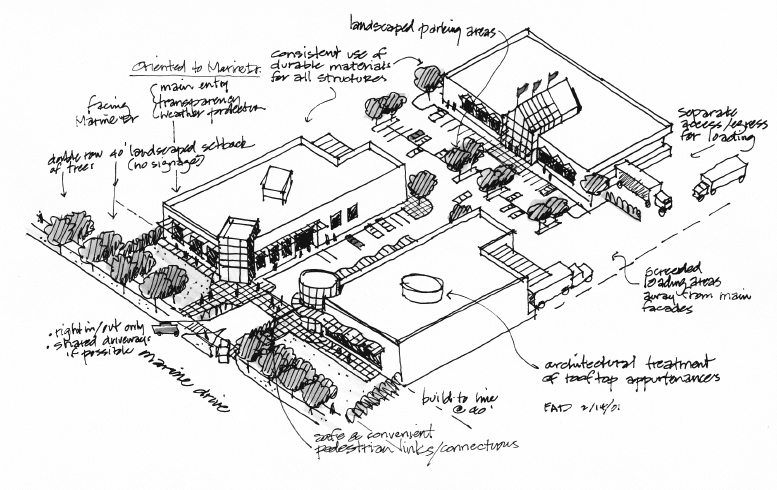 landscaped parking areas
consistent use of
durable materials
for all structures
Oriented to Marine Dr.
main entry
transparency
weather protection
facing
Marine Dr
double row
of trees
40' landscaped setback
(no signage)
separate
access/egress
for loading
screened
loading areas
away from main
facades
• right in/out only
• shared driveways
if possible
marine drive
build to line
@ 40'
architectural treatment
of rooftop appurtenances
2/14/01
safe & convenient
pedestrian links/connections